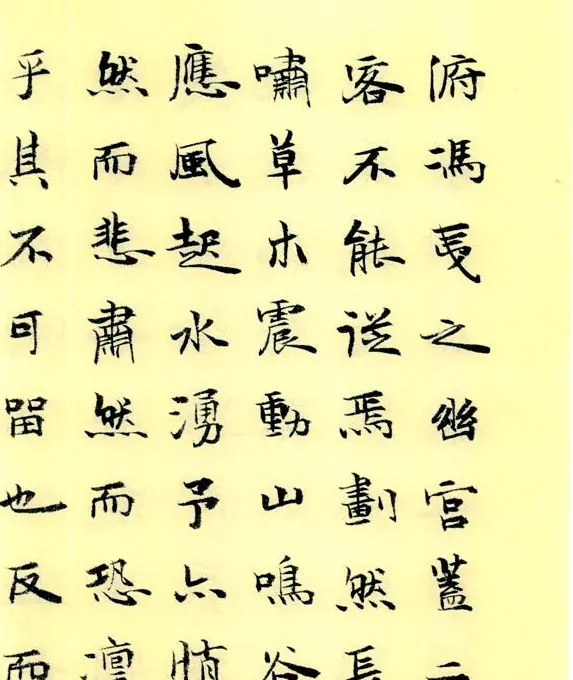 俯馮夷之幽宮蓋二
客不能從焉劃然長
嘯草木震動山鳴谷
應風起水湧予亦悄
然而悲肅然而恐凜
乎其不可留也反而